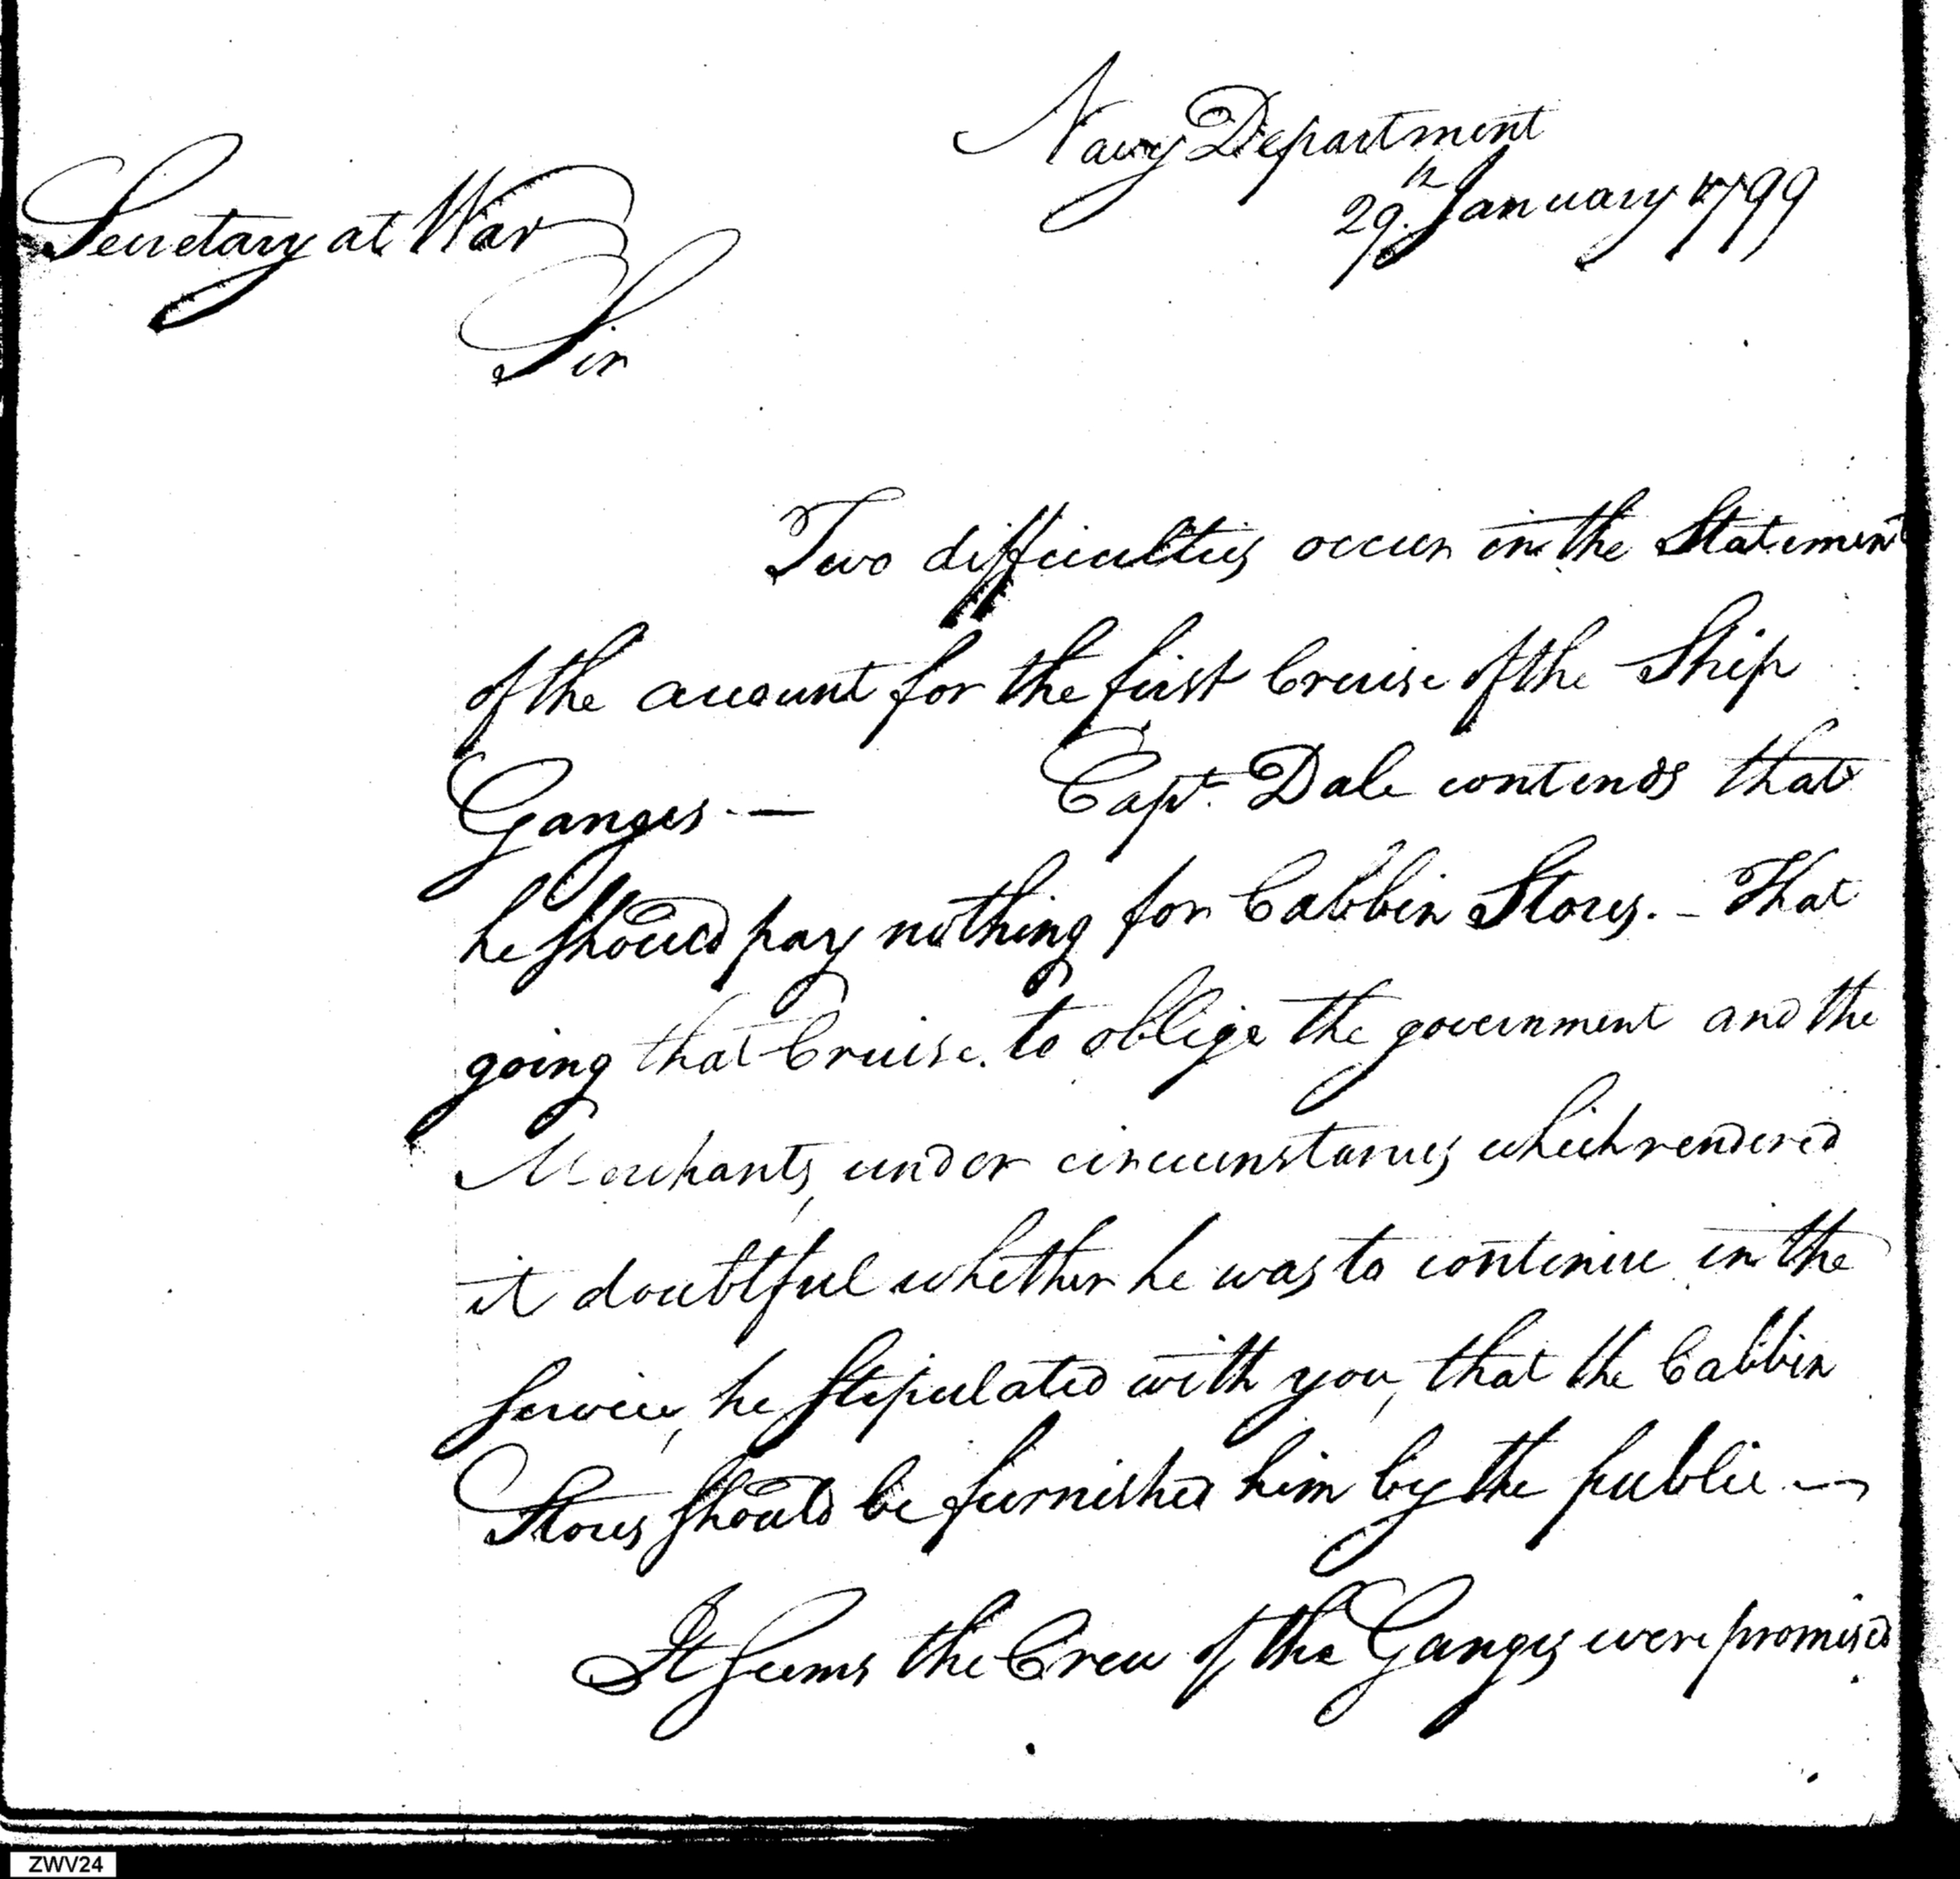 Navy Department
29.th January 1799
Secretary at War
Sir
Two difficulties occur in the Statement
of the account for the first Cruise of the Ship
Ganges — Capt. Dale contends that
he should pay nothing for Cabbin Stores. - That
going that Cruise. to oblige the government and the
Merchants, under circumstances which rendered
it doubtful whether he was to continue in the
service, he stipulated with you, that the Cabbin
Stores should be furnished him by the public —
It seems the Crew of the Ganges were promised
ZWV24